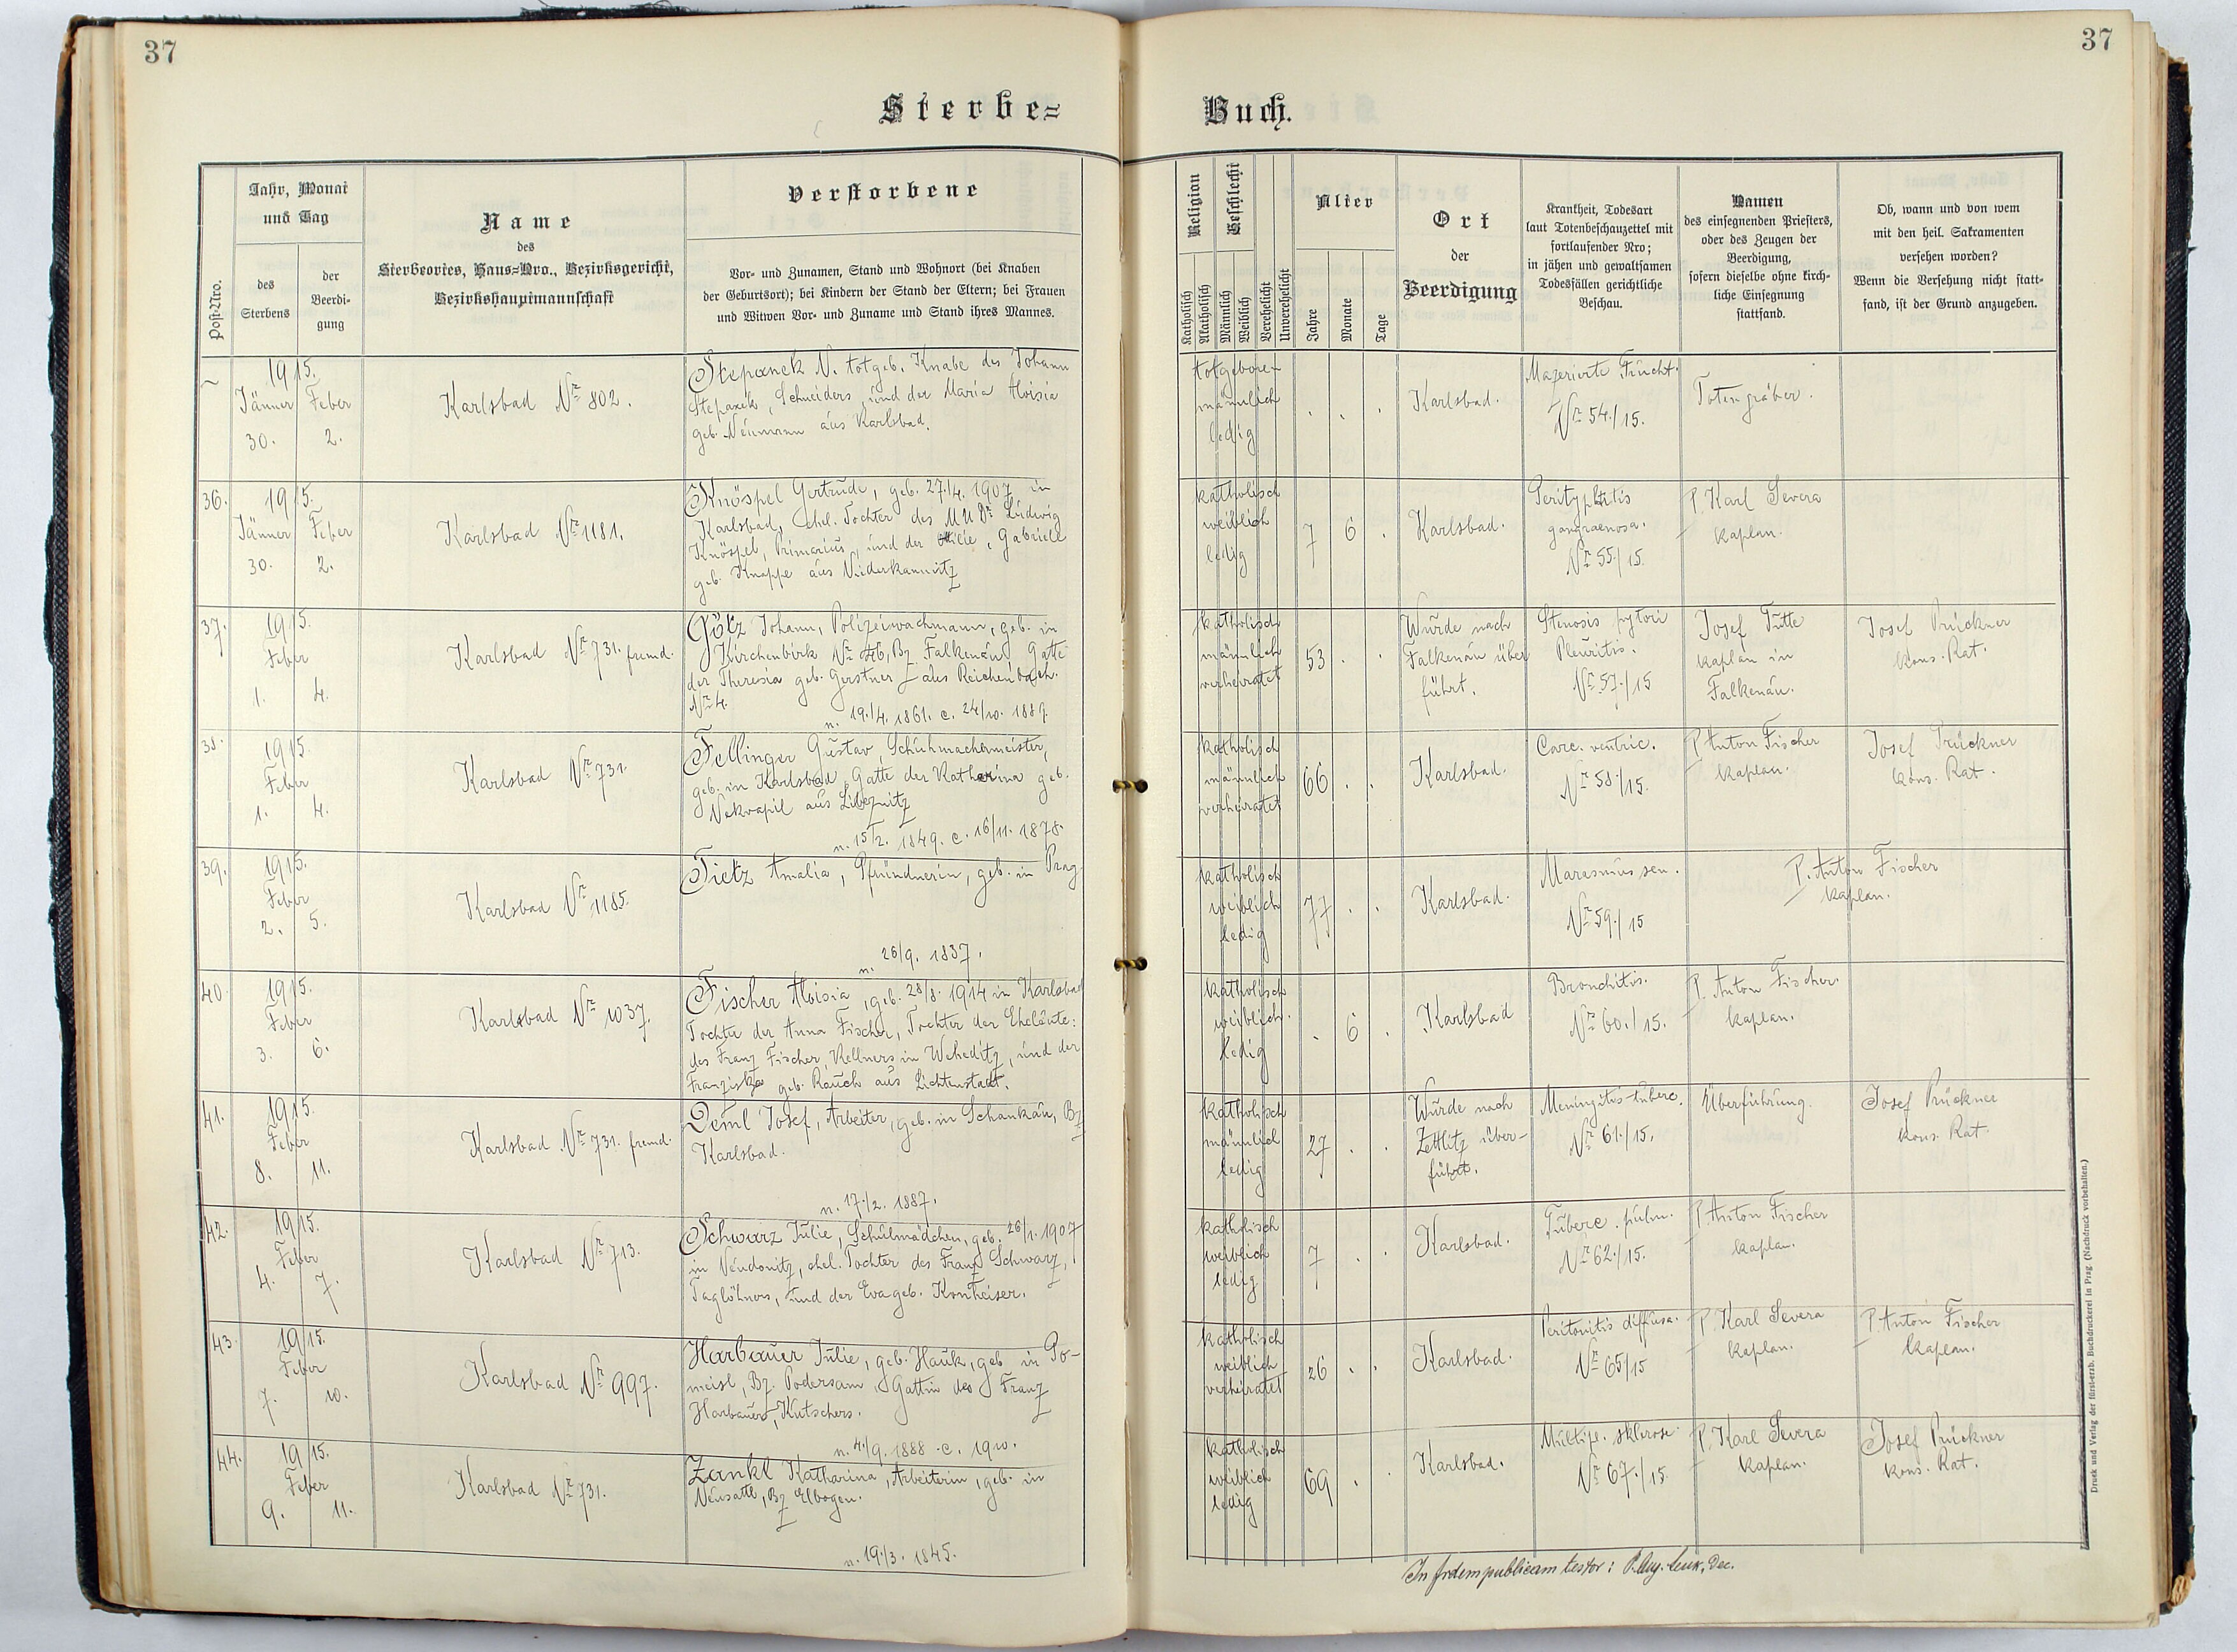 37
37
Sterbe=
Buch.
Post-Nro.
Jahr, Monat
und Tag
des
Sterbens
der
Beerdi-
gung
Name
des
Sterbeortes, Haus=Nro., Bezirksgericht,
Bezirkshauptmannschaft
Verstorbene
Vor- und Zunamen, Stand und Wohnort (bei Knaben
der Geburtsort); bei Kindern der Stand der Eltern; bei Frauen
und Witwen Vor- und Zuname und Stand ihres Mannes.
Religion
Katholisch
Akatholisch
Geschlecht
Männlich
Weiblich
Verehelicht
Unverehelicht
Alter
Jahre
Monate
Tage
Ort
der
Beerdigung
Krankheit, Todesart
laut Totenbeschauzettel mit
fortlaufender Nro;
in jähen und gewaltsamen
Todesfällen gerichtliche
Beschau.
Namen
des einsegnenden Priesters,
oder des Zeugen der
Beerdigung,
sofern dieselbe ohne kirch-
liche Einsegnung
stattfand.
Ob, wann und von wem
mit den heil. Sakramenten
versehen worden?
Wenn die Versehung nicht statt-
fand, ist der Grund anzugeben.
1915.
Jänner Feber
30. 2.
Karlsbad Nr 802.
Stepanek N. totgeb. Knabe des Johann
Stepanek, Schneiders, und der Maria Aloisia
geb. Neumann aus Karlsbad.
totgeboren
männlich
ledig
Karlsbad.
Mazerierte Frucht.
Nr 54./15.
Totengräber.
36.
1915.
Jänner Feber
30. 2.
Karlsbad Nr 1181.
Knöspel Gertrude, geb. 27./4. 1907 in
Karlsbad, ehel. Tochter des MUDr Ludwig
Knöspel, Primarius, und der Gabriele
geb. Knappe aus Niederkamnitz
katholisch
weiblich
ledig
7 6 .
Karlsbad.
Perityphlitis
gangraenosa.
Nr 55./15.
P. Karl Severa
Kaplan.
37.
1915.
Feber
1. 4.
Karlsbad Nr 731. fremd.
Götz Johann, Polizeiwachmann, geb. in
Kirchenbirk Nr 46, Bz. Falkenau, Gatte
der Theresia geb. Gerstner aus Reichenbach.
Nr 4.
n. 19./4. 1861. c. 24/10. 1889.
katholisch
männlich
verheiratet
53 . .
Wurde nach
Falkenau über
führt.
Stenosis pylori
Pleuritis.
Nr 57./15
Josef Tutte
Kaplan in
Falkenau.
Josef Prückner
Kons. Rat.
38.
1915.
Feber
1. 4.
Karlsbad Nr 731.
Fellinger Gustav, Schuhmachermeister,
geb. in Karlsbad, Gatte der Katharina geb.
Nekvapil aus Libeznitz
n. 15/2. 1849. c. 16/11. 1878.
katholisch
männlich
verheiratet
66 . .
Karlsbad.
Carc. ventric.
Nr 58/15.
P. Anton Fischer
Kaplan.
Josef Prückner
Kons. Rat.
39.
1915.
Feber
2. 5.
Karlsbad Nr 1185.
Tietz Amalia, Pfründnerin, geb. in Prag
n. 26/9. 1837.
katholisch
weiblich
ledig
77 . .
Karlsbad.
Marasmus sen.
Nr 59./15
P. Anton Fischer
Kaplan.
40.
1915.
Feber
3. 6.
Karlsbad Nr 1037.
Fischer Aloisia, geb. 28/8. 1914 in Karlsbad
Tochter der Anna Fischer, Tochter der Eheleute:
des Franz Fischer, Kellners in Weheditz, und der
Franziska geb. Rauch aus Lichtenstadt.
katholisch
weiblich.
ledig
. 6 .
Karlsbad
Bronchitis.
Nr 60./15.
P. Anton Fischer
Kaplan.
41.
1915.
Feber
8. 11.
Karlsbad Nr 731. fremd.
Deml Josef, Arbeiter, geb. in Schankau, Bz
Karlsbad.
n. 17./2. 1887.
katholisch
männlich
ledig
27 . .
Wurde nach
Zettlitz über-
führt.
Meningitis tuberc.
Nr 61./15.
Überführung.
Josef Prückner
Kons. Rat.
42.
1915.
Feber
4. 7.
Karlsbad Nr 713.
Schwarz Julie, Schulmädchen, geb. 26/1. 1907
in Neudonitz, ehel. Tochter des Franz Schwarz,
Taglöhners, und der Eva geb. Kornheiser.
katholisch
weiblich
ledig
7 . .
Karlsbad.
Tuberc. pulm.
Nr 62./15.
P. Anton Fischer
Kaplan.
43.
1915.
Feber
7. 10.
Karlsbad Nr 997.
Harbauer Julie, geb. Hauk, geb. in Po-
meisl, Bz. Podersam, Gattin des Franz
Harbauer, Kutschers.
n. 4./9. 1888. c. 1910.
katholisch
weiblich
verheiratet
26 . .
Karlsbad.
Peritonitis diffusa.
Nr 65/15
P. Karl Severa
Kaplan.
P. Anton Fischer
Kaplan.
44.
1915.
Feber
9. 11.
Karlsbad Nr 731.
Zankl Katharina, Arbeiterin, geb. in
Neusattl, Bz Elbogen.
n. 19./3. 1845.
katholisch
weiblich
ledig
69 . .
Karlsbad.
Multipl. sklerose.
Nr 67./15.
P. Karl Severa
Kaplan.
Josef Prückner
Kons. Rat.
In fidem publicam testor: P. Aug. Dec.
Druck und Verlag der fürst-erzb. Buchdruckerei in Prag. (Nachdruck vorbehalten.)